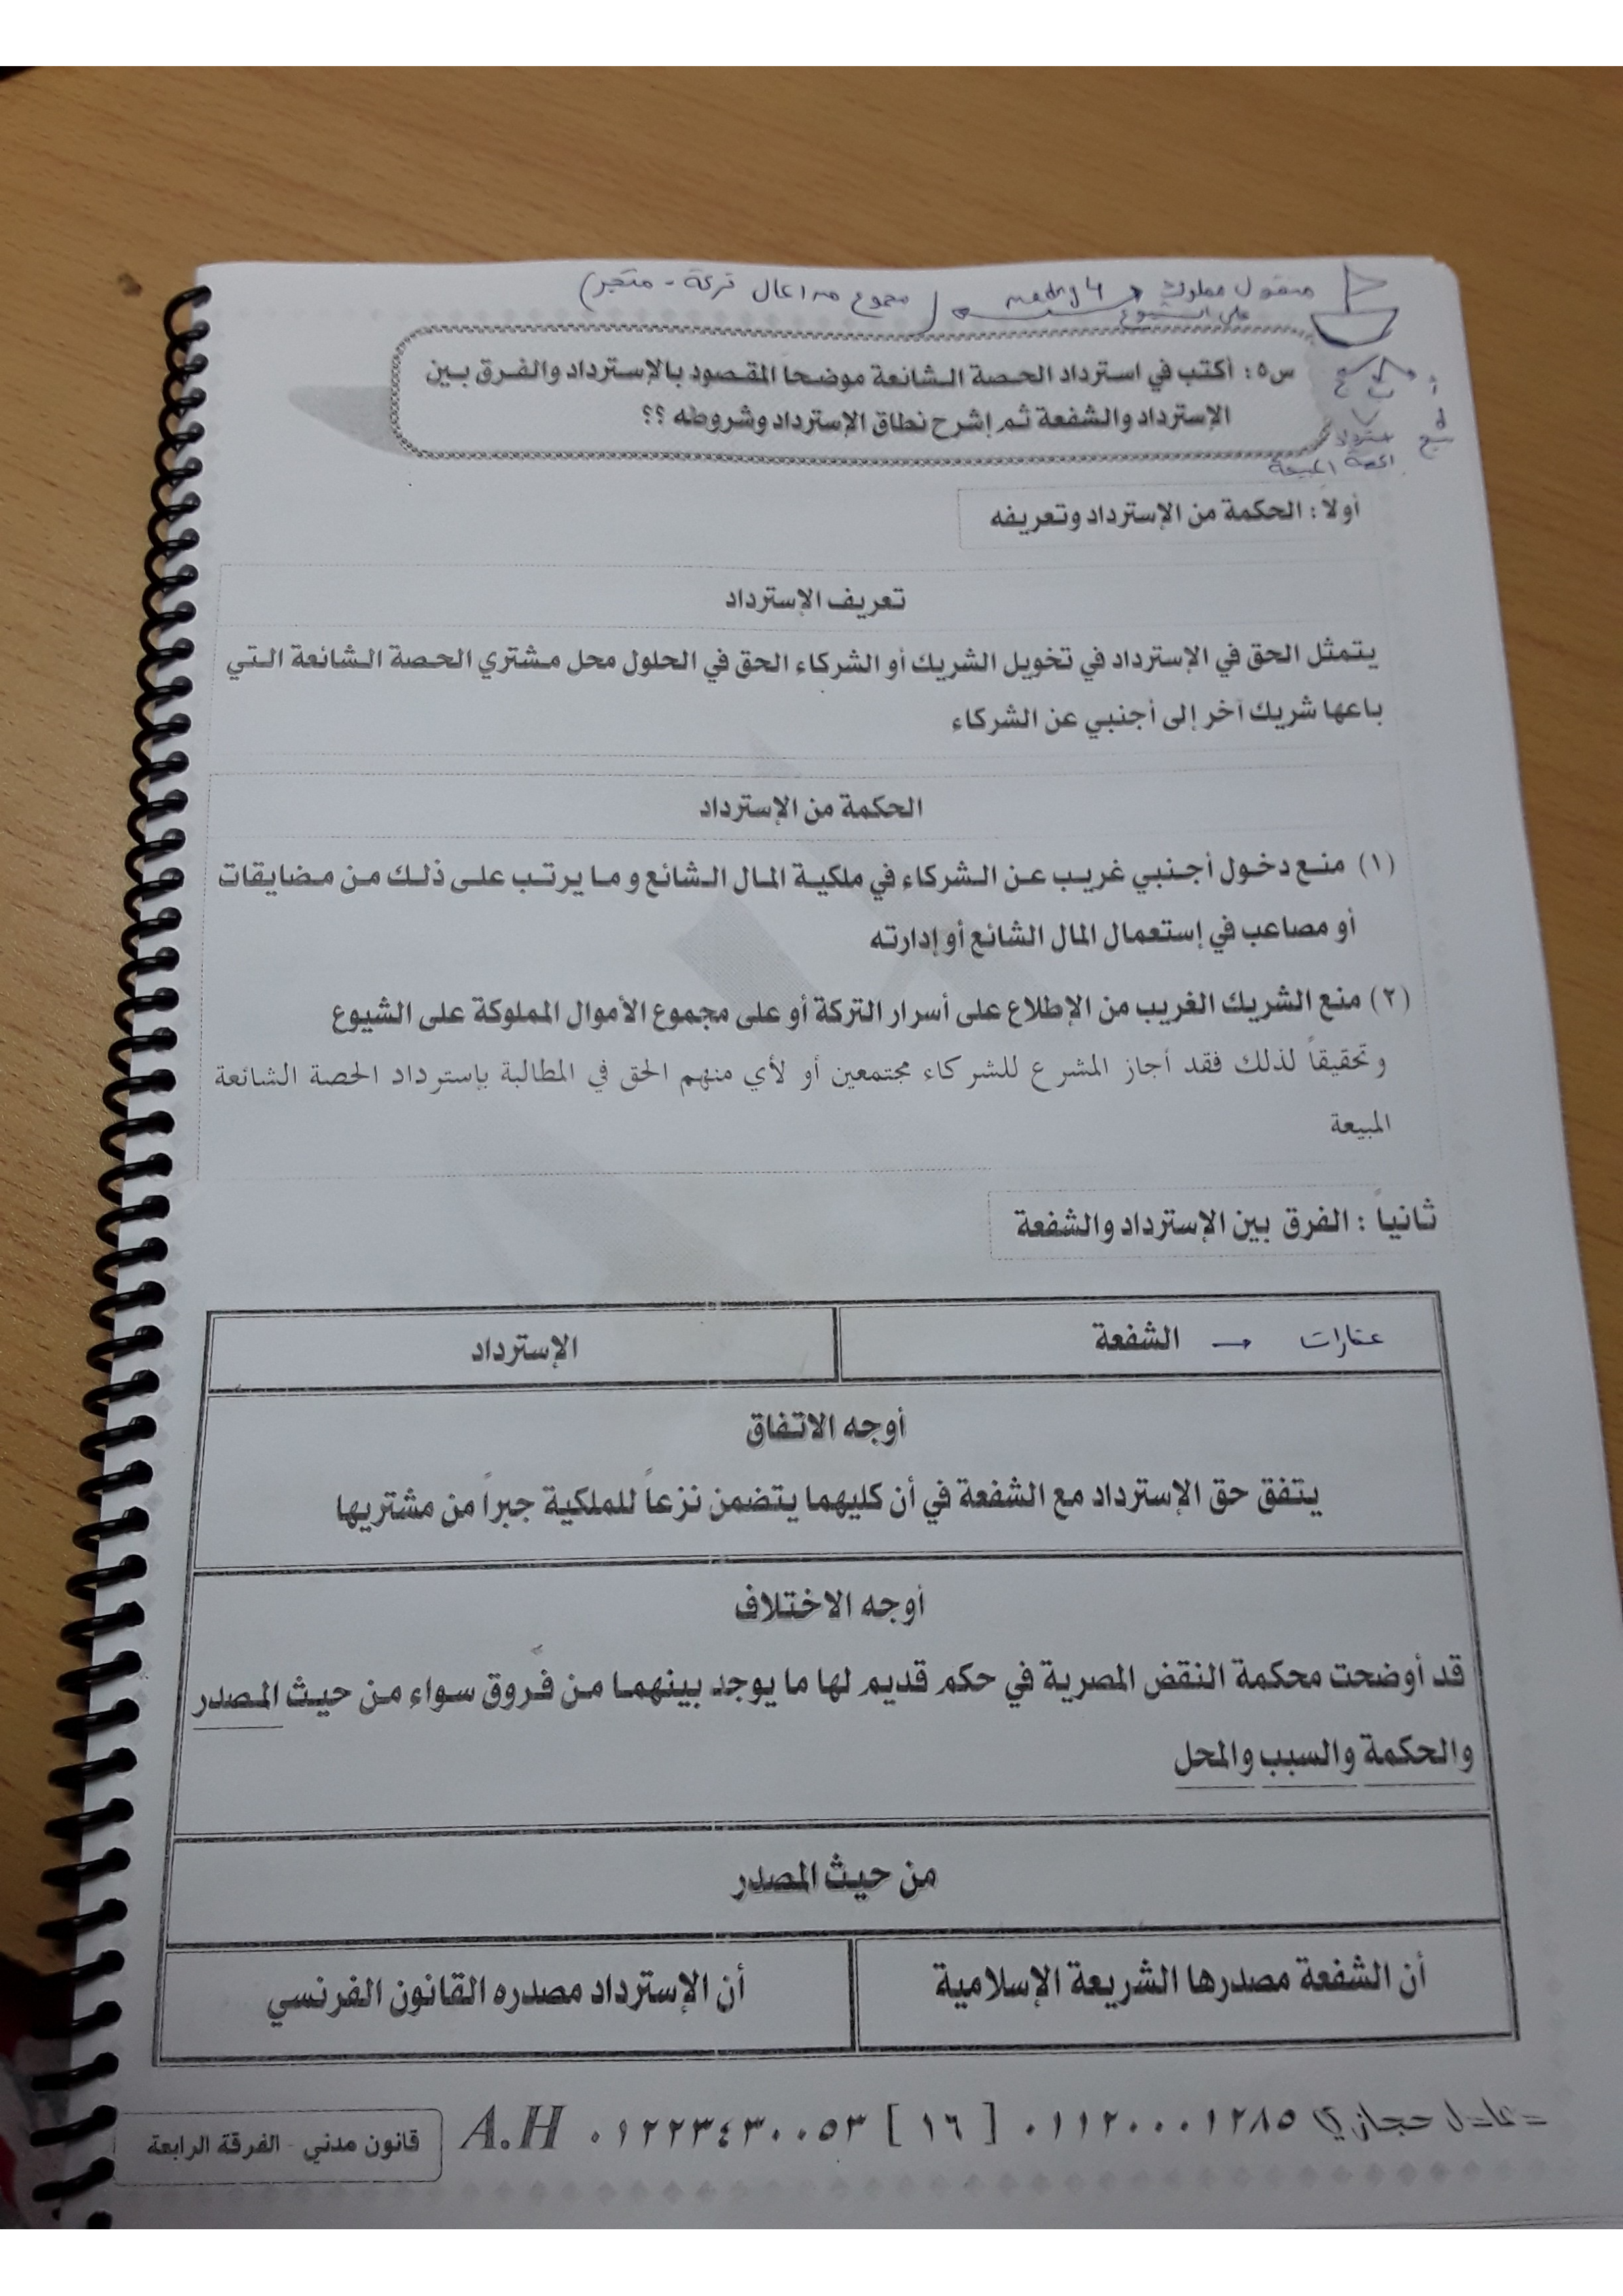 منقول مملوك
على الشيوع
مجموع من اعمال تركة - متجر)
س٥: أكتب في استرداد الحصة الشائعة موضحاً المقصود بالإسترداد والفرق بين
الإسترداد والشفعة ثم إشرح نطاق الإسترداد وشروطه ؟؟
الحصة المبيعة
أولاً : الحكمة من الإسترداد وتعريفه
تعريف الإسترداد
يتمثل الحق في الإسترداد في تخويل الشريك أو الشركاء الحق في الحلول محل مشتري الحصة الشائعة التي
باعها شريك آخر إلى أجنبي عن الشركاء
الحكمة من الإسترداد
(١) منع دخول أجنبي غريب عن الشركاء في ملكية المال الشائع و ما يرتب على ذلك من مضايقات
أو مصاعب في إستعمال المال الشائع أو إدارته
(٢) منع الشريك الغريب من الإطلاع على أسرار التركة أو على مجموع الأموال المملوكة على الشيوع
وتحقيقاً لذلك فقد أجاز المشرع للشركاء مجتمعين أو لأي منهم الحق في المطالبة بإسترداد الحصة الشائعة
المبيعة
ثانياً : الفرق بين الإسترداد والشفعة
عقارات → الشفعة
الإسترداد
أوجه الاتفاق
يتفق حق الإسترداد مع الشفعة في أن كليهما يتضمن نزعاً للملكية جبراً من مشتريها
أوجه الاختلاف
قد أوضحت محكمة النقض المصرية في حكم قديم لها ما يوجد بينهما من فروق سواء من حيث المصدر
والحكمة والسبب والمحل
من حيث المصدر
أن الشفعة مصدرها الشريعة الإسلامية
أن الإسترداد مصدره القانون الفرنسي
عادل حجازي ٠١١٢٠٠٠١٢٨٥ [ ١٦ ] ٠١٢٢٣٤٣٠٠٥٣ A.H
قانون مدني - الفرقة الرابعة